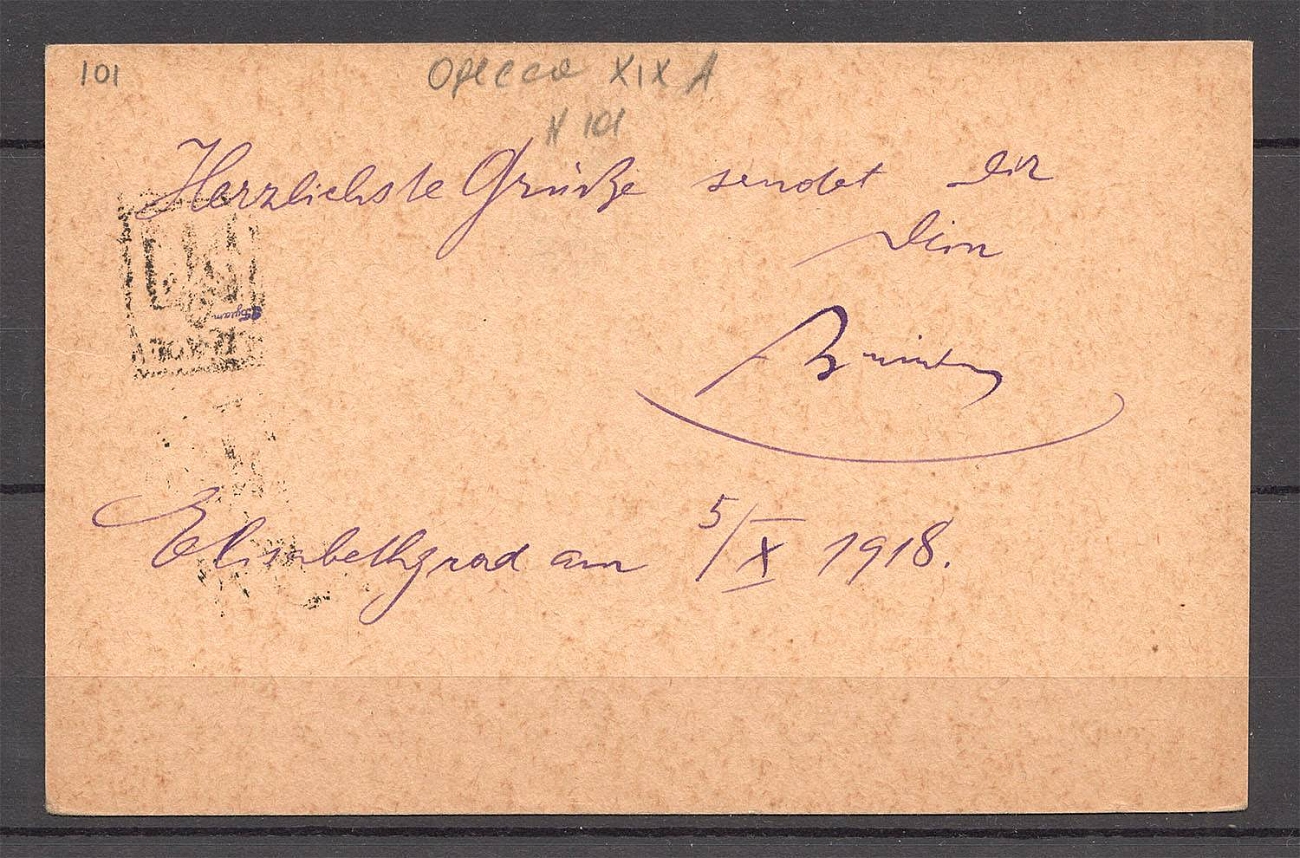 101
Одесса XIX A
N 101
Herzlichste Grüße sendet Dir
Dein
Elisabethgrad am 5/X 1918.